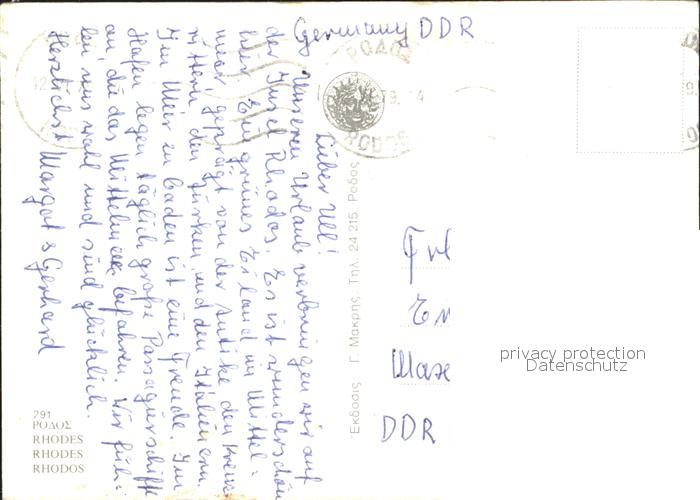 Germany DDR
Lieber Ulli!
Unseren Urlaub verbringen wir auf
der Insel Rhodos. Es ist wunderschön
hier. Ein grünes Eiland im Mittel-
meer, geprägt von der Antike, den Kreuz-
rittern, den Türken und den Italienern.
Im Meer zu baden ist eine Freude. Im
Hafen legen täglich große Passagierschiffe
an, die das Mittelmeer befahren. Wir füh-
len uns wohl und sind glücklich.
Herzlichst Margot & Gerhard
ΡΟΔΟΣ
RODOS
Εκδοσις Γ. Μακρης, Τηλ. 24 215, Ροδος
Frl
Max
DDR
privacy protection
Datenschutz
291
ΡΟΔΟΣ
RHODES
RHODES
RHODOS